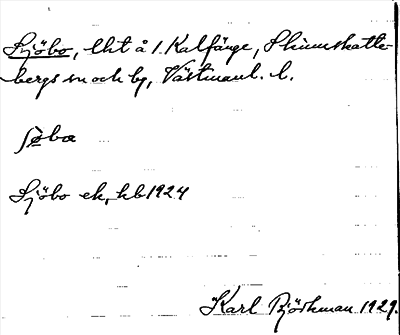 Sjöbo, lht å 1. Kalfänge, Skinnskatte-
bergs sn och by, Västmanl. l.
ʃøbω
Sjöbo ek, hb 1924
Karl Björkman 1929.